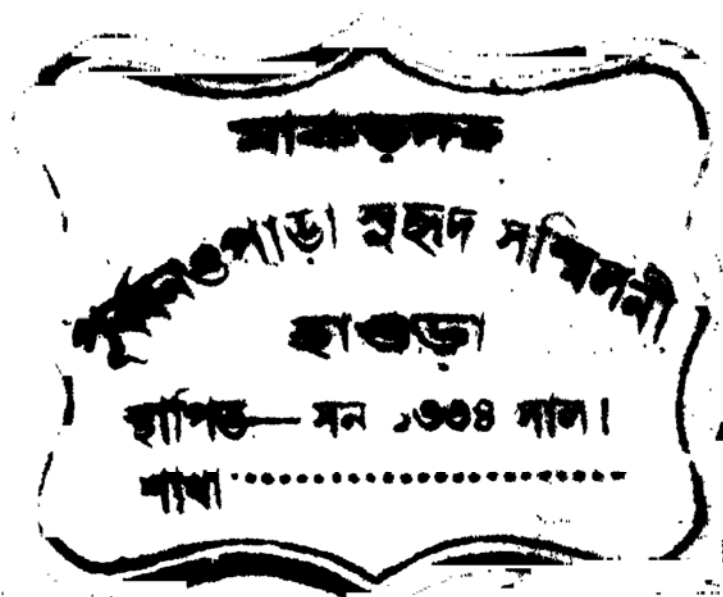 মাকড়দহ
সুহৃদ সম্মিলনী
হাওড়া
স্থাপিত— সন ১৩৩৪ সাল।
শাখা ..............................